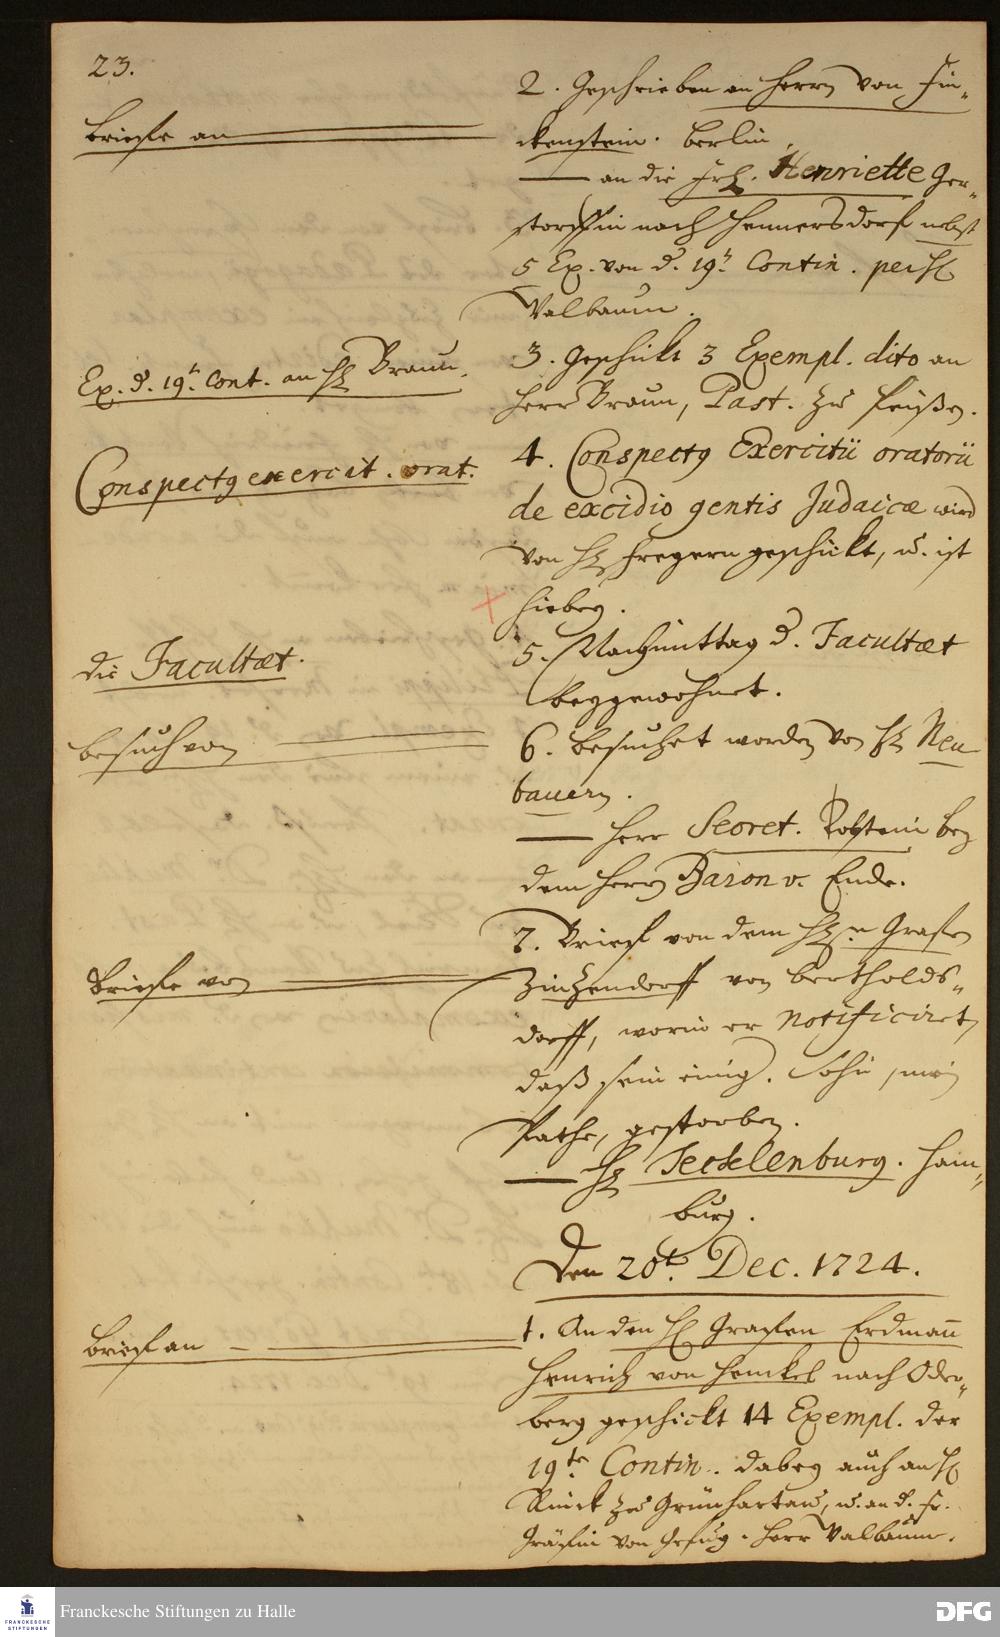 23.
Briefe an
2. Geschrieben an Herrn von Fin-
ckenstein. Berlin,
— an die Frl. Henriette Ger-
storffin nach Hennersdorf nebst
5 Ex. von d. 19t. Contin. per H
Valbaum.
Ex. d. 19t. Cont. an H Braun.
3. Geschickt 3 Exempl. dito an
Herr Braun, Past. zu
Conspectg exercit. orat.
4. Conspectg Exercitii oratorii
de excidio gentis Judaicæ wird
von H Fregern geschickt, u. ist
hiebey.
die Facultæt.
5. Nachmittag d. Facultæt
beygewohnet.
Besuch von
6. Besuchet worden von H Neu
bauern.
— Herr Secret. bey
dem Herrn Baron v. Ende.
Briefe von
7. Brief von dem H Grafen
Zinzendorff von Bertholds-
dorff, worin er notificiret,
daß sein einig. Sohn, mein
Pathe, gestorben.
— H Tecklenburg. Ham-
burg.
Den 20t. Dec. 1724.
Brief an
1. An den H Grafen Erdmann
Henrich von Henckel nach Oder-
berg geschickt 14 Exempl. der
19te Contin. dabey auch an H
zu Grünhartau, u. an d. Fr.
Gräfin von Herr Valbaum.
Franckesche Stiftungen zu Halle
FRANCKESCHE
STIFTUNGEN
DFG